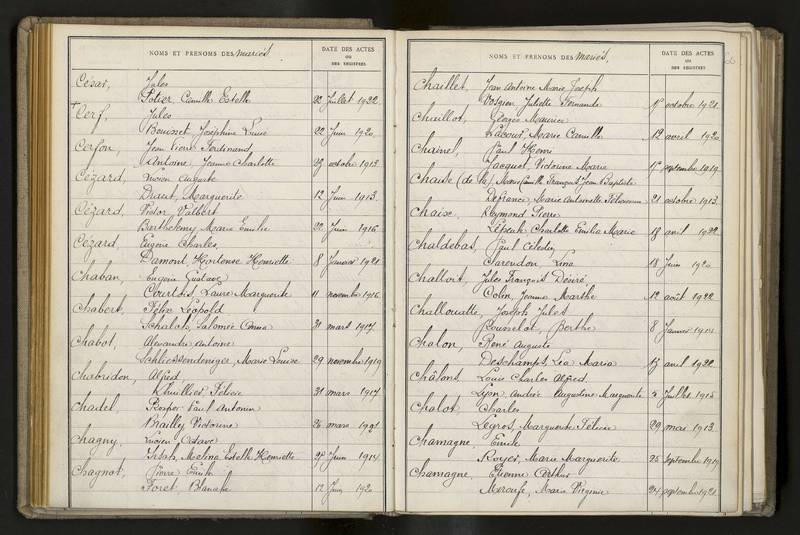 NOMS ET PRENOMS DES mariés
DATE DES ACTES
OU
DES REGISTRES
César, Jules
Potier, Camille Estelle 22 Juillet 1922
Cerf, Jules
Bousset, Joséphine Laure 22 Juin 1920
Cerfon, Jean Pierre Ferdinand
Antoine, Jeanne Charlotte 29 octobre 1913
Cézard, Lucien Auguste
Marguerite 12 Juin 1913
Cézard, Victor Valbert
Barthelemy, Marie Emilie 22 Juin 1916
Cézard, Eugène Charles
Damont Hortense Henriette 8 Janvier 1921
Chaban, Eugène Gustave
Courtois, Laure Marguerite 11 novembre 1916
Chabert, Félix Léopold
Salomée Anna 31 mars 1917
Chabot, Alexandre Antoine
Marie Louise 29 novembre 1919
Chabridon, Alfred
Lhuillier, Félicie 31 mars 1917
Chadel, Prosper Paul Antonin
Bailly Victorine 26 mars 1921
Chagny, Lucien Octave
Melina Estelle Henriette 27 Juin 1914
Chagnot, Pierre Emile
Foret, Blanche 12 Juin 1920
NOMS ET PRENOMS DES mariés
DATE DES ACTES
OU
DES REGISTRES
Chaillet, Jean Antoine Marie Joseph
Vosgien Juliette Fernande 1er octobre 1921
Chaillot, Georges Maurice
Labour, Marie Camille 12 avril 1920
Chainel, Paul Henri
Jacquet, Victorine Marie septembre 1919
Chaise (de la), Marie Camille François Jean Baptiste
Defrance, Marie Antoinette 21 octobre 1913
Chaise, Raymond Pierre
Charlotte Emilie Marie 18 avril 1922
Chaldebas, Paul
Clarendon, Lina 18 Juin 1920
Challoit, Jules François Désiré
Colin, Jeanne Marthe 12 août 1922
Challouatte, Joseph Jules
Rousselot, Berthe 8 Janvier
Chalon, René Auguste
Deschamps, Léa Maria 13 avril 1922
Châlons Louis Charles Alfred
Lyon, Andrée Augustine Marguerite 3 Juillet 1915
Chalot Charles
Legros, Marguerite Félicie 29 mai 1913
Chamagne Emile
Royer, Marie Marguerite 25 septembre 1919
Chamagne, Etienne Arthur
Marie Virginie 24 septembre 1921